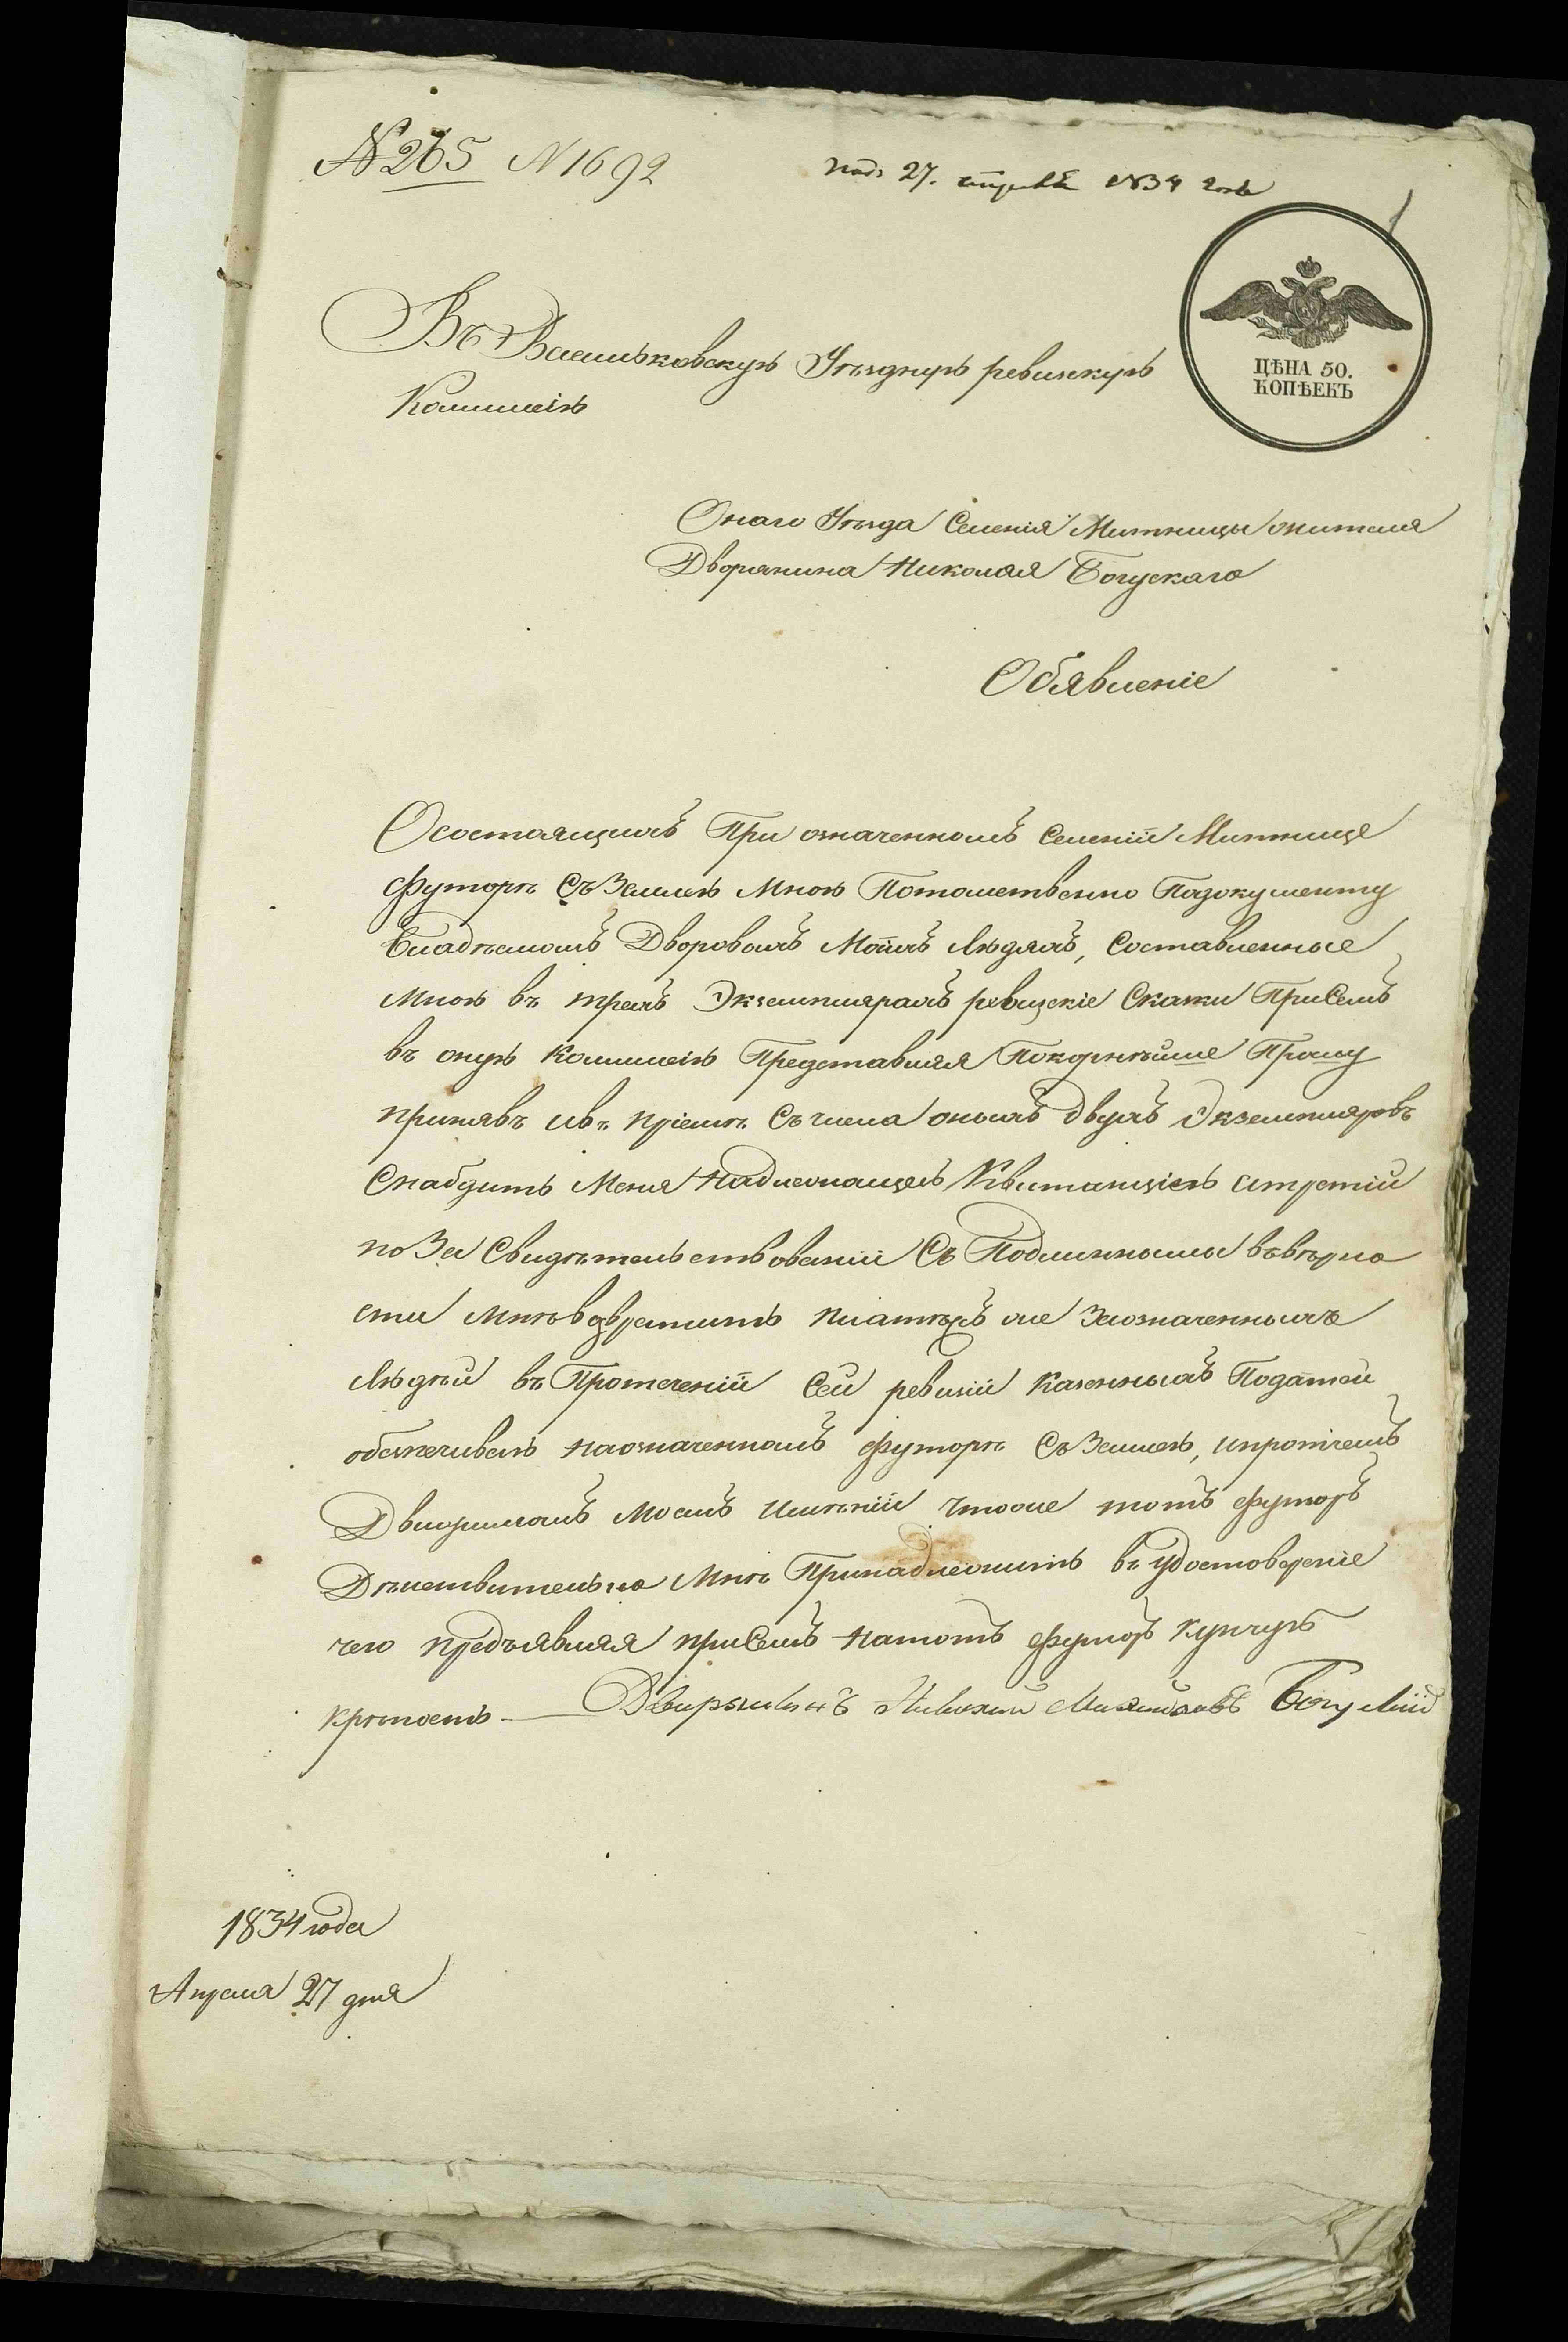 № 265 N 1692
под. 27. апреля 1834 года
ЦѢНА 50.
КОПѢЕКЪ
Въ Васильковскую Уѣздную ревизкую
Коммисію
Онаго Уѣзда Селенія Митницы жителя
Дворянина Николая Богускаго
Обявленіе
Осостоящихъ При означенномъ Селеніи Митнице
футорѣ Съ Землею Мною Потомственно Подокументу
Владѣемомъ Дворовыхъ Моихъ Людяхъ, Составленные
мною въ трехъ Экземплярахъ ревизскіе Скаски ПриСемъ
въ оную Коммисію Представляя Покорнѣише Прошу
принявъ ихъ пріемѣ Съ числа оныхъ двухъ Экземпляровъ
Снабдить Меня Надлежащею Квитанціею итретіи
по За Свидѣтельствованіи Съ Подлинными въвѣрно
сти мнѣвозвратить платѣжъ же Заозначенныхъ
Людѣи въ Протеченіи Сеи ревизіи Казенныхъ Податеи
обезпечиваю наозначенномъ футорѣ Съ Землею, ипротчемъ
Движимомъ Моемъ Имѣніи Чтоже тотъ футоръ
Дѣиствительно Мнѣ Принадлежитъ въ удостоверѣніе
чего предъявляя приСемъ Натотъ футоръ купчую
крѣпость — Дворянинъ Николай Богускій
1834 года
Апреля 27 дня